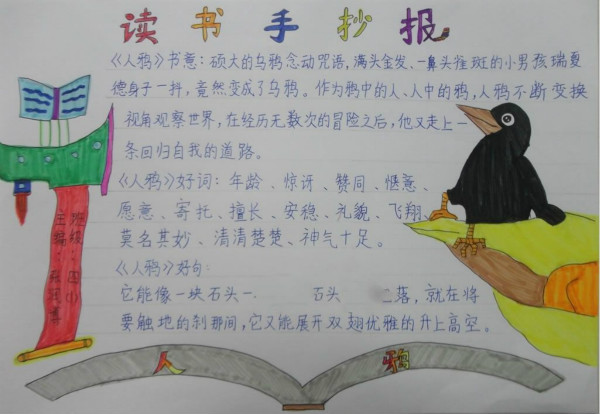 读书手抄报
《人鸦》书意:硕大的乌鸦念动咒语,满头金发、一鼻头雀斑的小男孩瑞夏
德身子一抖,竟然变成了乌鸦。作为鸦中的人、人中的鸦,人鸦不断变换
视角观察世界,在经历无数次的冒险之后,他又走上一
条回归自我的道路。
《人鸦》好词:年龄、惊讶、赞同、惬意、
愿意、寄托、擅长、安稳、礼貌、飞翔、
莫名其妙、清清楚楚、神气十足。
《人鸦》好句:
它能像一块石头一 石头 落,就在将
要触地的刹那间,它又能展开双翅优雅的升上高空。
班级:四
主编:
人鸦